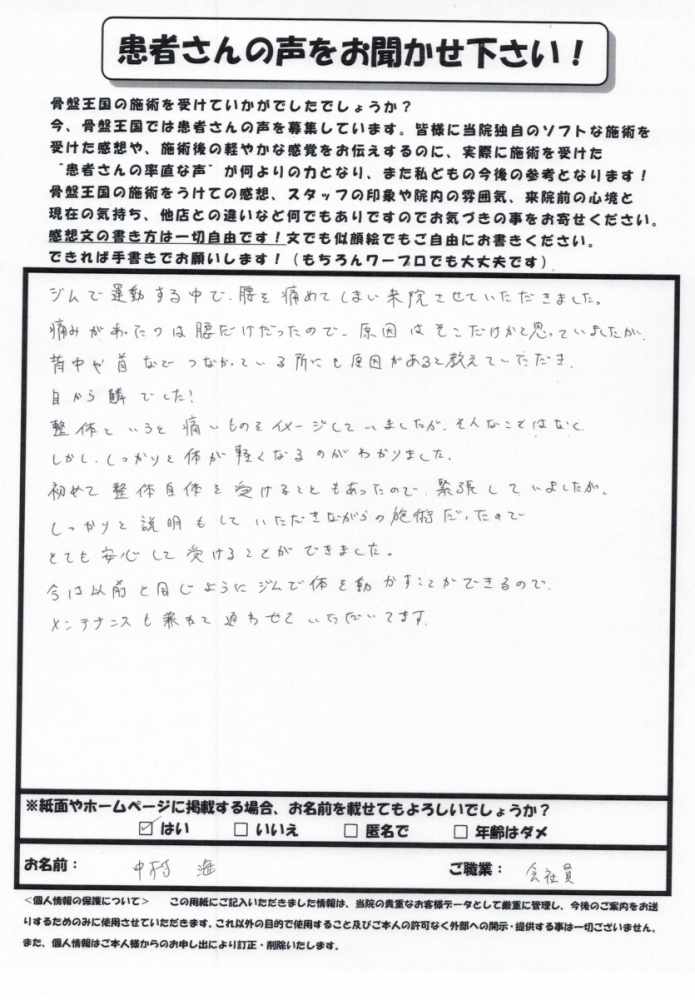 患者さんの声をお聞かせ下さい！
骨盤王国の施術を受けていかがでしたでしょうか？
今、骨盤王国では患者さんの声を募集しています。皆様に当院独自のソフトな施術を
受けた感想や、施術後の軽やかな感覚をお伝えするのに、実際に施術を受けた
"患者さんの率直な声"が何よりの力となり、また私どもの今後の参考となります！
骨盤王国の施術をうけての感想、スタッフの印象や院内の雰囲気、来院前の心境と
現在の気持ち、他店との違いなど何でもありですのでお気づきの事をお寄せください。
感想文の書き方は一切自由です！文でも似顔絵でもご自由にお書きください。
できれば手書きでお願いします！（もちろんワープロでも大丈夫です）
ジムで運動する中で、腰を痛めてしまい来院させていただきました。
痛みがあったのは腰だけだったので、原因はそこだけかと思っていましたが、
背中や首などつながっている所にも原因があると教えていただき、
目から鱗でした！
整体というと痛いものをイメージしていましたが、そんなことはなく、
しかし、しっかりと体が軽くなるのがわかりました。
初めて整体自体を受けることもあったので、緊張していましたが、
しっかりと説明もしていただきながらの施術だったので
とても安心して受けることができました。
今は以前と同じようにジムで体を動かすことができるので、
メンテナンスも兼ねて通わせていただいてます。
※紙面やホームページに掲載する場合、お名前を載せてもよろしいでしょうか？
☑ はい □ いいえ □ 匿名で □ 年齢はダメ
お名前： 中村 ご職業： 会社員
＜個人情報の保護について＞ この用紙にご記入いただきました情報は、当院の貴重なお客様データとして厳重に管理し、今後のご案内をお送
りするためのみに使用させていただきます。これ以外の目的で使用すること及びご本人の許可なく外部への開示・提供する事は一切ございません。
また、個人情報はご本人様からのお申し出により訂正・削除いたします。